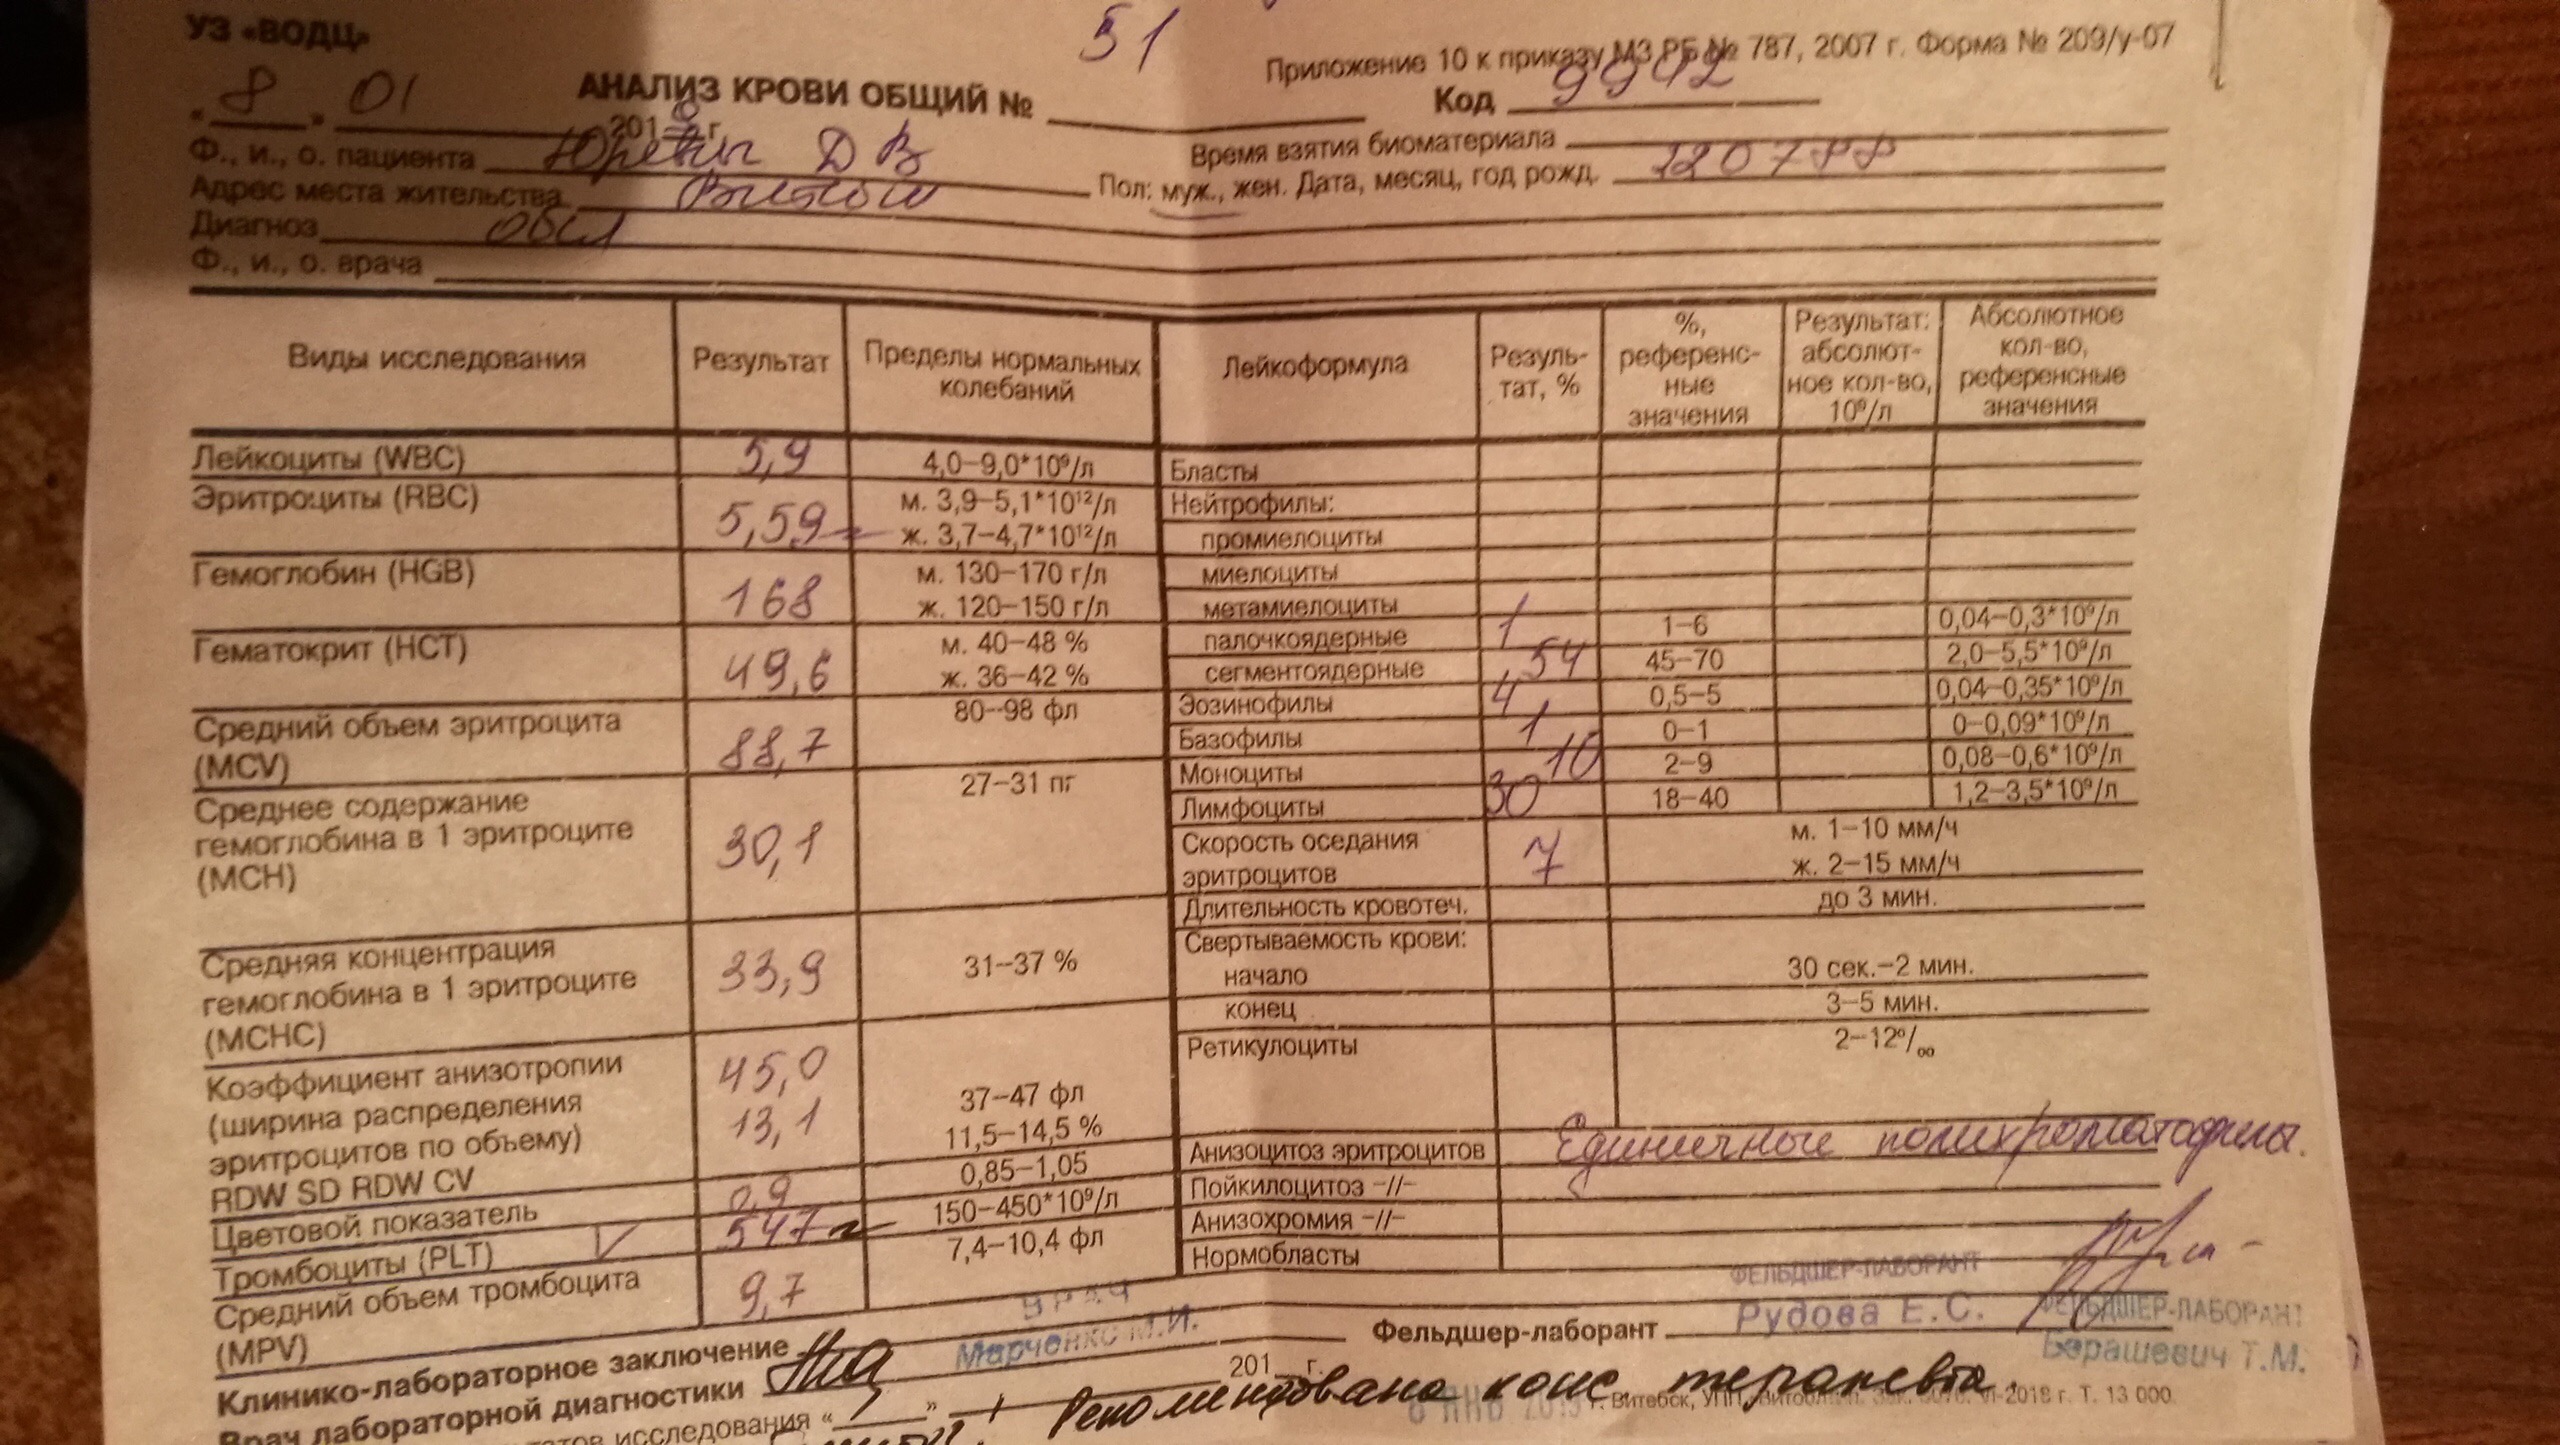 УЗ «ВОДЦ»
51
Приложение 10 к приказу МЗ РБ № 787, 2007 г. Форма № 209/у-07
АНАЛИЗ КРОВИ ОБЩИЙ №
Код 9902
« 8 » 01 201 г.
Время взятия биоматериала
Ф., и., о. пациента Д В
Пол: муж., жен. Дата, месяц, год рожд. 220788
Адрес места жительства
Диагноз обсл
Ф., и., о. врача
Виды исследования Результат Пределы нормальных колебаний
Лейкоциты (WBC) 5,9 4,0–9,0*10⁹/л
Эритроциты (RBC) 5,59 м. 3,9–5,1*10¹²/л
ж. 3,7–4,7*10¹²/л
Гемоглобин (HGB) 168 м. 130–170 г/л
ж. 120–150 г/л
Гематокрит (HCT) 49,6 м. 40–48 %
ж. 36–42 %
Средний объем эритроцита 88,7 80–98 фл
(MCV)
Среднее содержание 27–31 пг
гемоглобина в 1 эритроците 30,1
(MCH)
Средняя концентрация 33,9 31–37 %
гемоглобина в 1 эритроците
(MCHC)
Коэффициент анизотропии 45,0 37–47 фл
(ширина распределения 13,1 11,5–14,5 %
эритроцитов по объему)
RDW SD RDW CV
Цветовой показатель 0,9 0,85–1,05
Тромбоциты (PLT) 547 150–450*10⁹/л
Средний объем тромбоцита 9,7 7,4–10,4 фл
(MPV)
Лейкоформула Резуль-тат, % %, референс-ные значения Результат: абсолют-ное кол-во, 10⁹/л Абсолютное кол-во, референсные значения
Бласты
Нейтрофилы:
промиелоциты
миелоциты
метамиелоциты
палочкоядерные 1 1–6 0,04–0,3*10⁹/л
сегментоядерные 54 45–70 2,0–5,5*10⁹/л
Эозинофилы 4 0,5–5 0,04–0,35*10⁹/л
Базофилы 1 0–1 0–0,09*10⁹/л
Моноциты 10 2–9 0,08–0,6*10⁹/л
Лимфоциты 30 18–40 1,2–3,5*10⁹/л
Скорость оседания 7 м. 1–10 мм/ч
эритроцитов ж. 2–15 мм/ч
Длительность кровотеч. до 3 мин.
Свертываемость крови:
начало 30 сек.–2 мин.
конец 3–5 мин.
Ретикулоциты 2–12⁰/₀₀
Анизоцитоз эритроцитов Единичные полихроматофилы.
Пойкилоцитоз –//–
Анизохромия –//–
Нормобласты
ФЕЛЬДШЕР-ЛАБОРАНТ
Рудова Е.С.
ФЕЛЬДШЕР-ЛАБОРАНТ
Барашевич Т.М.
ВРАЧ
Марченко М.И.
Клинико-лабораторное заключение
Фельдшер-лаборант
Врач лабораторной диагностики
201 г.
исследования « »
Рекомендована конс. терапевта.
г. Витебск, 2018 г. Т. 13 000.